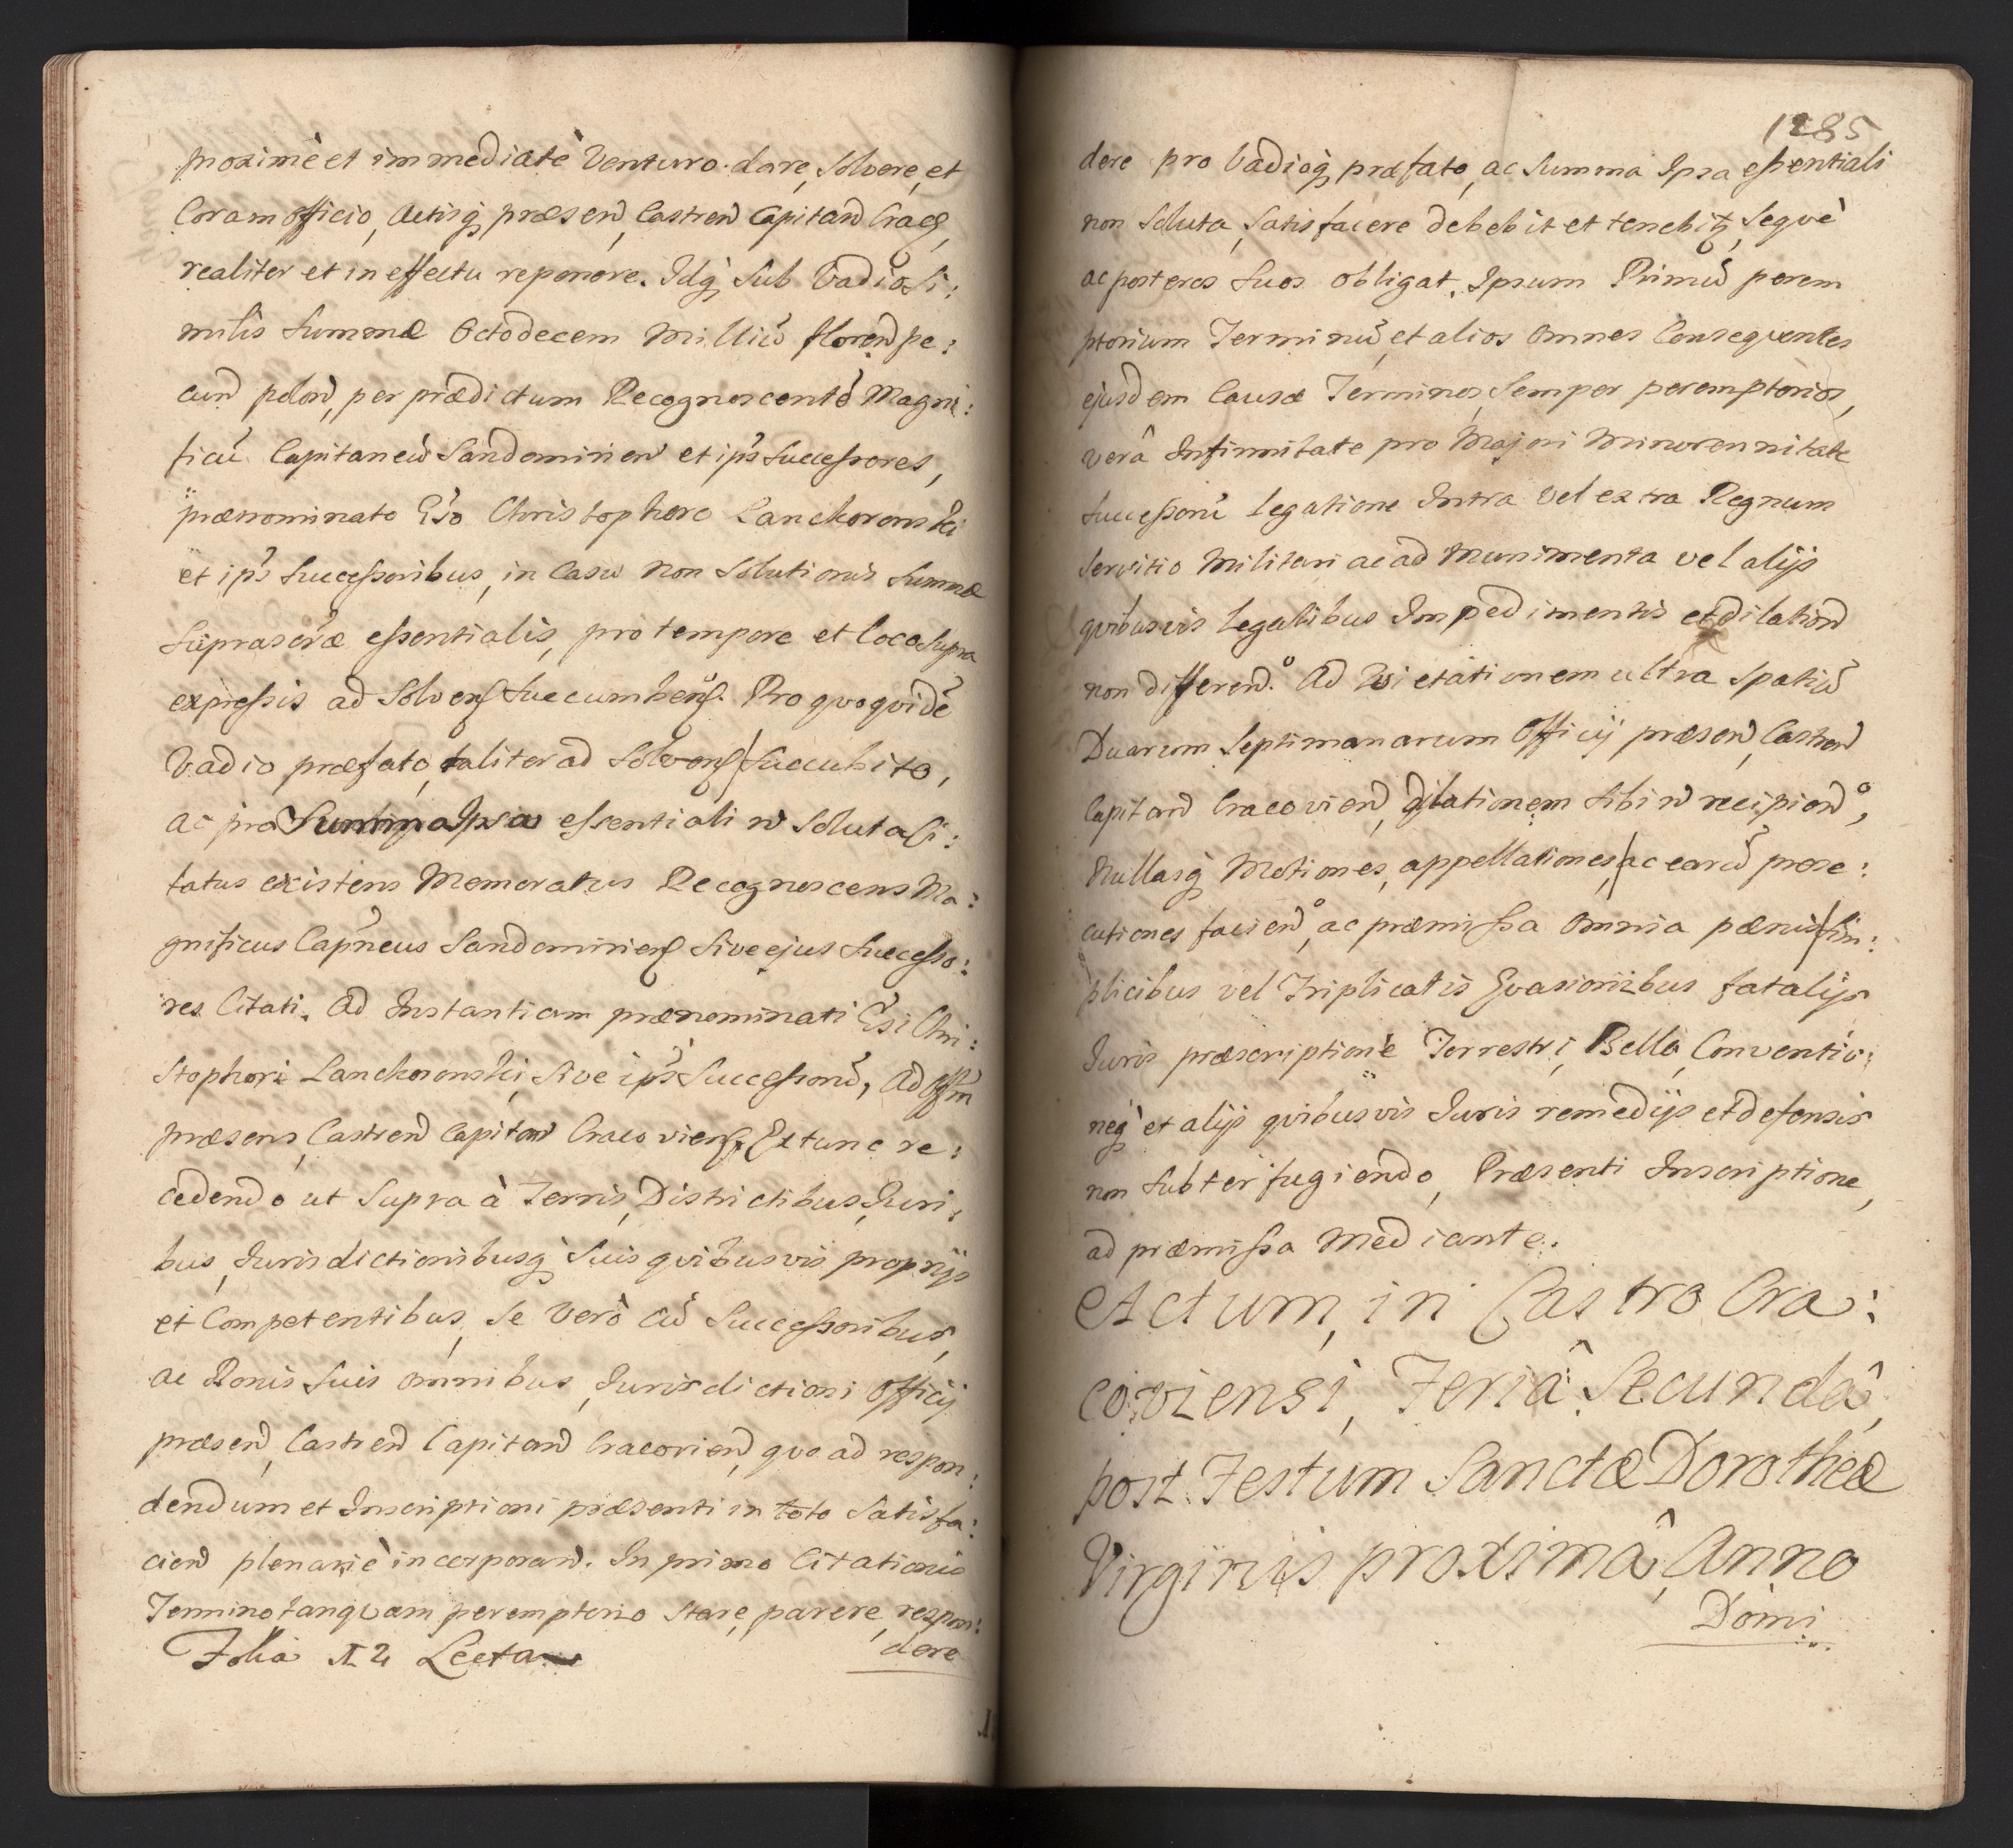 proximè et immediatè Venturo. dare, Solvere, et
Coram officio, Actisq̨ præsen̄, Castren̄ Capitan̄ Crac̨
realiter et in effectu reponere. Idq̨ sub Vadio Si:
milis Summæ Octodecem Milliū floren̄ pe:
cun̄ polon̄, per prædictum Recognoscentē Magni:
ficū Capitaneū Sandomirien̄ et ip̄s Successores,
prænominato Gso Christophoro Lanckoronski
et ip̄s Successoribus, in Casu non Solutionis Summæ
Suprascr̄æ essentialis, pro tempore et loco Supra
expressis ad Solven̄ Succumben̄. Pro quoquidē
Vadio præfato, taliter ad Solven̄ Succubito,
ac pro Summa Ipsa essentiali n̄ Soluta Ci:
tatus existens Memoratus Recognoscens Ma:
gnificus Cap̄neus Sandomirien̄ Sive ejus Successo:
res Citati. Ad Instantiam prænominati Gsi Chri:
stophori Lanckoronski, Sive ip̄s Successorū, Ad Offm
præsens, Castren̄ Capitan̄ Cracovien̄, Extunc re:
cedendo ut Supra à Terris, Districtibus, Juri:
bus, Jurisdictionibusq̨ Suis quibusvis proprijs
et Competentibus, Se verò cū Successoribus,
ac Bonis Suis omnibus, Jurisdictioni Officij
præsen̄, Castren̄ Capitan̄ Cracovien̄, quo ad respon:
dendum et Inscriptioni præsenti in toto Satisfa:
cien̄ plenariè incorporan̄. In primo Citationis
Termino tanquam peremptorio Stare, parere, respon:
dere
Folia N 24 Lecta
1285
dere pro Vadioq̨ præfato, ac Summa Ipsa essentiali
non Soluta, Satisfacere debebit et tenebit̄, Sequè
ac posteros Suos obligat. Ipsum Primū perem
ptorium Terminū, et alios Omnes Consequentes
ejusdem Causæ Terminos, Semper peremptorios,
verâ Infirmitate pro Majori Minorennitate
Successorū Legatione Intra vel extra Regnum
Servitio Militari ac ad Munimenta vel alijs
quibusvis Legalibus Impedimentis et dilation̄
non differen̄do. Ad Quietationem ultra Spatiū
Duarum Septimanarum Officij præsen̄, Castren̄
Capitan̄ Cracovien̄, dilationem Sibi n̄ recipien̄do,
Nullasq̨ Motiones, appellationes, ac earū prose:
cutiones facien̄do, ac præmissa Omnia pænis Sim:
plicibus vel Triplicatis Evasionibus fatalijs
Juris præscriptionè Terrestri, Bello, Conventio:
neq̨ et alijs quibusvis Juris remedijs et defensis
non Subterfugiendo, Præsenti Inscriptione,
ad præmissa Mediante.
Actum, in Castro Cra:
coviensi, Feriâ Secundâ,
post Festum Sanctæ Dorotheæ
Virginis proximâ, Anno
Domi